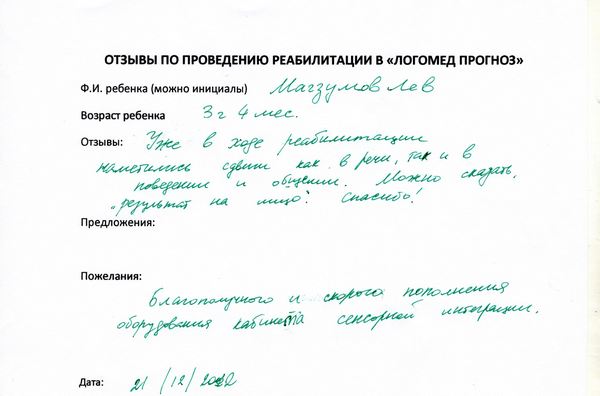 ОТЗЫВЫ ПО ПРОВЕДЕНИЮ РЕАБИЛИТАЦИИ В «ЛОГОМЕД ПРОГНОЗ»
Ф.И. ребенка (можно инициалы) Магзумов Лев
Возраст ребенка 3 г 4 мес.
Отзывы: Уже в ходе реабилитации
наметились сдвиги как в речи, так и в
поведении и общении. Можно сказать,
"результат на лицо". Спасибо!
Предложения:
Пожелания:
Благополучного и скорого пополнения
оборудования кабинета сенсорной интеграции.
Дата: 21 /12/ 2022